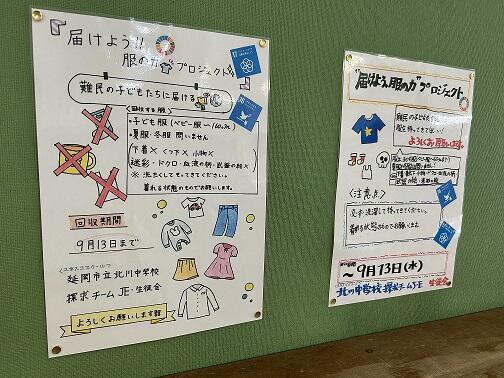 『届けよう!!
服の力 プロジェクト』
17
16
難民の子どもたちに届ける
〈回収する服〉
・子ども服(ベビー服〜160cm)
・夏服・冬服 問いません
下着× くつ下× 小物×
迷彩・ドクロ・血液の柄・武器の絵×
※ 洗たくしてもってきてください。
着れる状態のものでお願いします。
回収期間
9月13日まで
〈ユネスコスクール〉
延岡市立北川中学校
探求チームJE・生徒会
よろしくお願いします
"届けよう、服の力"プロジェクト
難民の子どもたちに
よろしくお願いします。
〈注意点〉
必ず洗濯して持ってきてください。
着れる状態のものでお願いします。
〜9月13日(水)
北川中学校 探求チームJ-E 生徒会